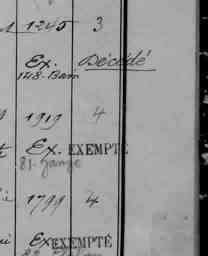 1245 3
Ex. Décédé
148. Bain
1919 4
Ex. EXEMPTÉ
81.
1799 4
Ex EXEMPTÉ